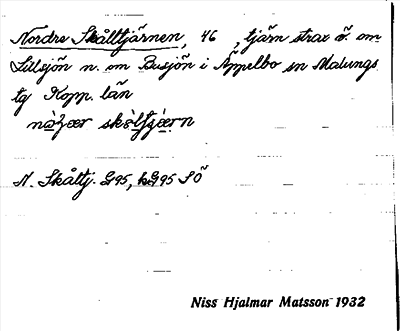 Nordre Skålltjärnen, 46, tjärn strax ö. om
Lillsjön n. om Busjön i Äppelbo sn Malungs
tg Kopp. län
N. Skåltj. G95, hG95 SÖ
Niss Hjalmar Matsson 1932